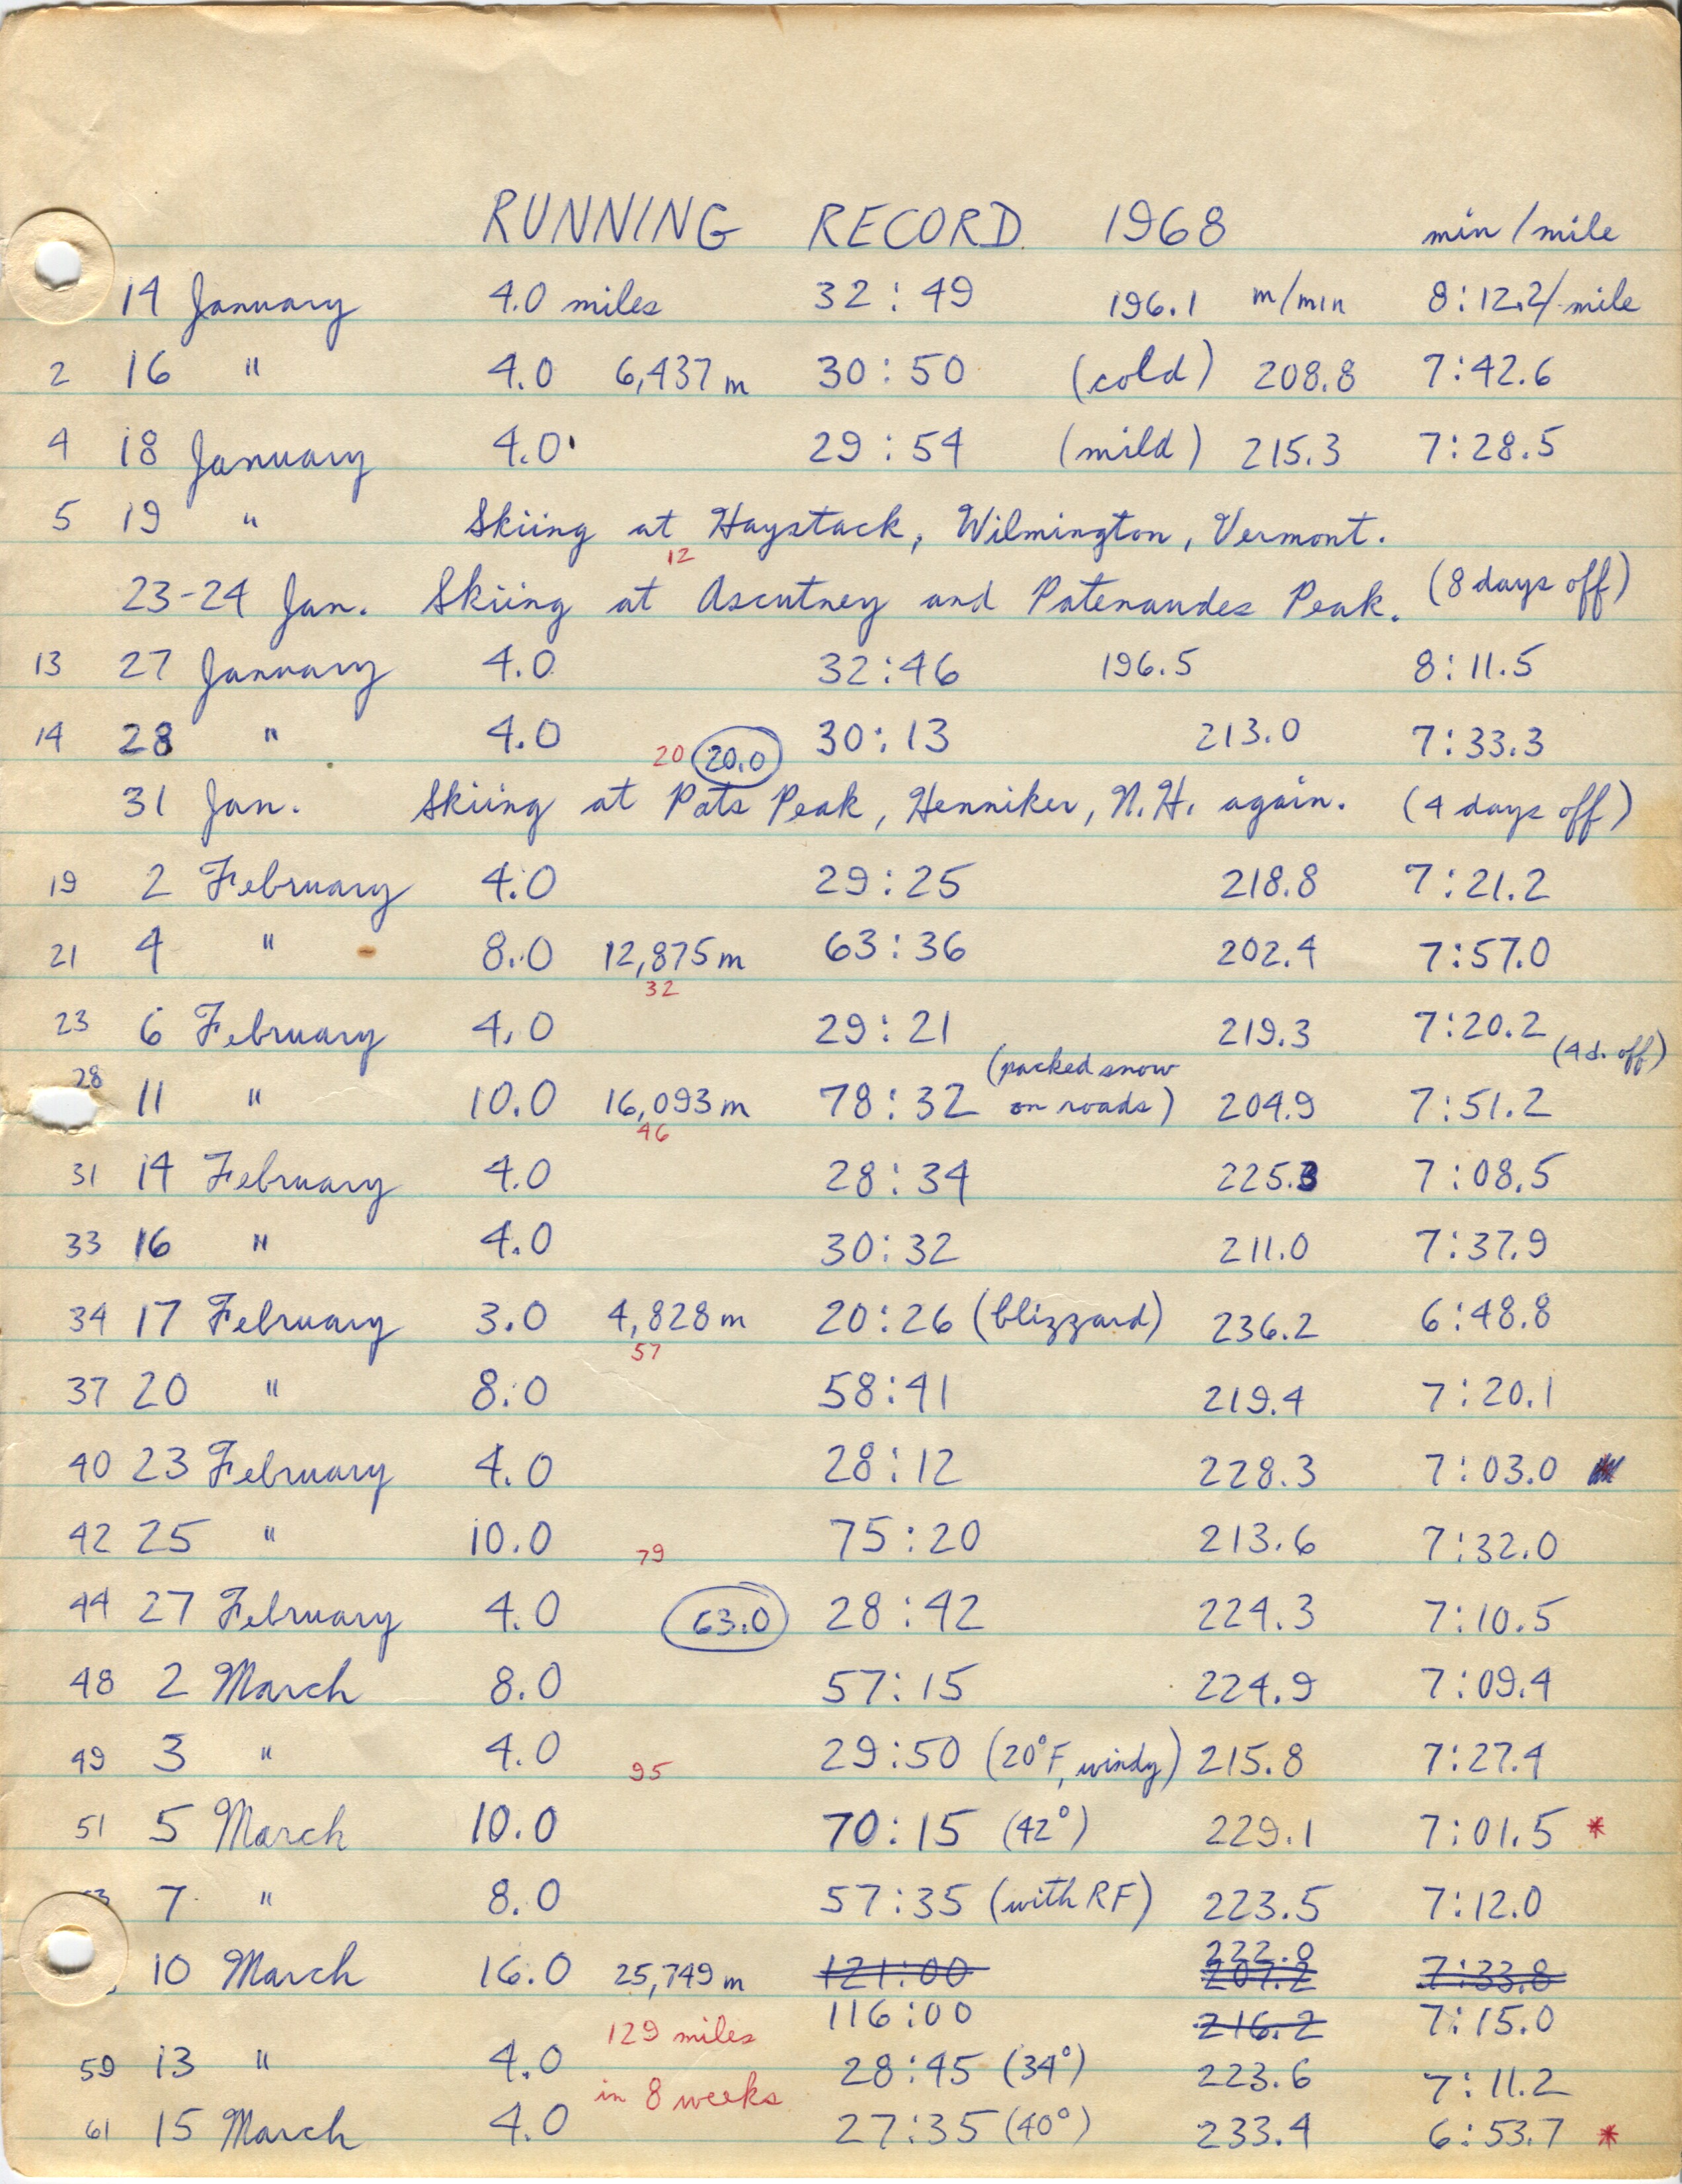 RUNNING RECORD 1968 min/mile
14 January 4.0 miles 32:49 196.1 m/min 8:12.2/mile
2 16 " 4.0 6,437 m 30:50 (cold) 208.8 7:42.6
4 18 January 4.0 29:54 (mild) 215.3 7:28.5
5 19 " Skiing at Haystack, Wilmington, Vermont.
12
23-24 Jan. Skiing at Ascutney and Patenaudes Peak. (8 days off)
13 27 January 4.0 32:46 196.5 8:11.5
14 28 " 4.0 20 20.0 30:13 213.0 7:33.3
31 Jan. Skiing at Pats Peak, Henniker, N.H. again. (4 days off)
19 2 February 4.0 29:25 218.8 7:21.2
21 4 " 8.0 12,875 m 63:36 202.4 7:57.0
32
23 6 February 4.0 29:21 219.3 7:20.2 (4 d. off)
28 11 " 10.0 16,093 m 78:32 (packed snow on roads) 204.9 7:51.2
46
31 14 February 4.0 28:34 225.3 7:08.5
33 16 " 4.0 30:32 211.0 7:37.9
34 17 February 3.0 4,828 m 20:26 (blizzard) 236.2 6:48.8
57
37 20 " 8.0 58:41 219.4 7:20.1
40 23 February 4.0 28:12 228.3 7:03.0
42 25 " 10.0 79 75:20 213.6 7:32.0
44 27 February 4.0 63.0 28:42 224.3 7:10.5
48 2 March 8.0 57:15 224.9 7:09.4
49 3 " 4.0 95 29:50 (20°F, windy) 215.8 7:27.4
51 5 March 10.0 70:15 (42°) 229.1 7:01.5 *
53 7 " 8.0 57:35 (with RF) 223.5 7:12.0
222.0
10 March 16.0 25,749 m 121:00 207.2 7:33.8
116:00 216.2 7:15.0
129 miles
59 13 " 4.0 28:45 (34°) 223.6 7:11.2
in 8 weeks
61 15 March 4.0 27:35 (40°) 233.4 6:53.7 *